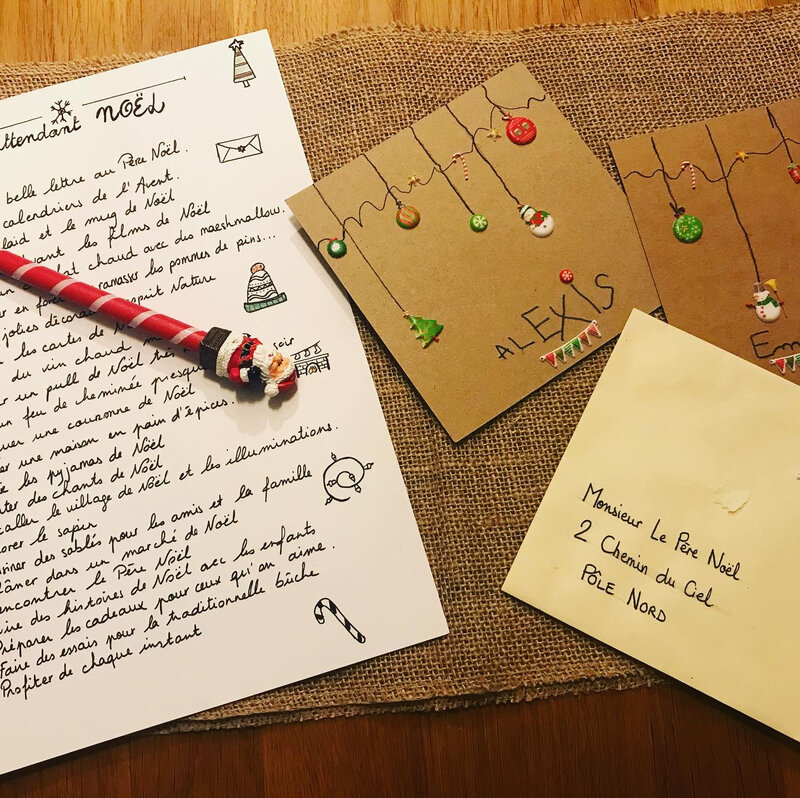 ttendant NOËL
belle lettre au Père Noël.
calendriers de l'Avent.
laid et le mug de Noël
vant les films de Noël
chaud avec des marshmallow.
er en ramasser les pommes de pins...
jolies esprit Nature
les cartes de
du vin chaud soir
un pull de Noël
un feu de cheminée presque
uer une couronne de Noël
er une maison en pain d'épices.
les pyjamas de Noël
ter des chants de Noël
taller le village de Noël et les illuminations.
orer le sapin
siner des sablés pour les amis et la famille
lâner dans un marché de Noël
encontrer le Père Noël
ire des histoires de Noël avec les enfants
Préparer les cadeaux pour ceux qu'on aime.
Faire des essais pour la traditionnelle bûche
Profiter de chaque instant
ALEXIS
Em
Monsieur Le Père Noël
2 Chemin du Ciel
PÔLE NORD